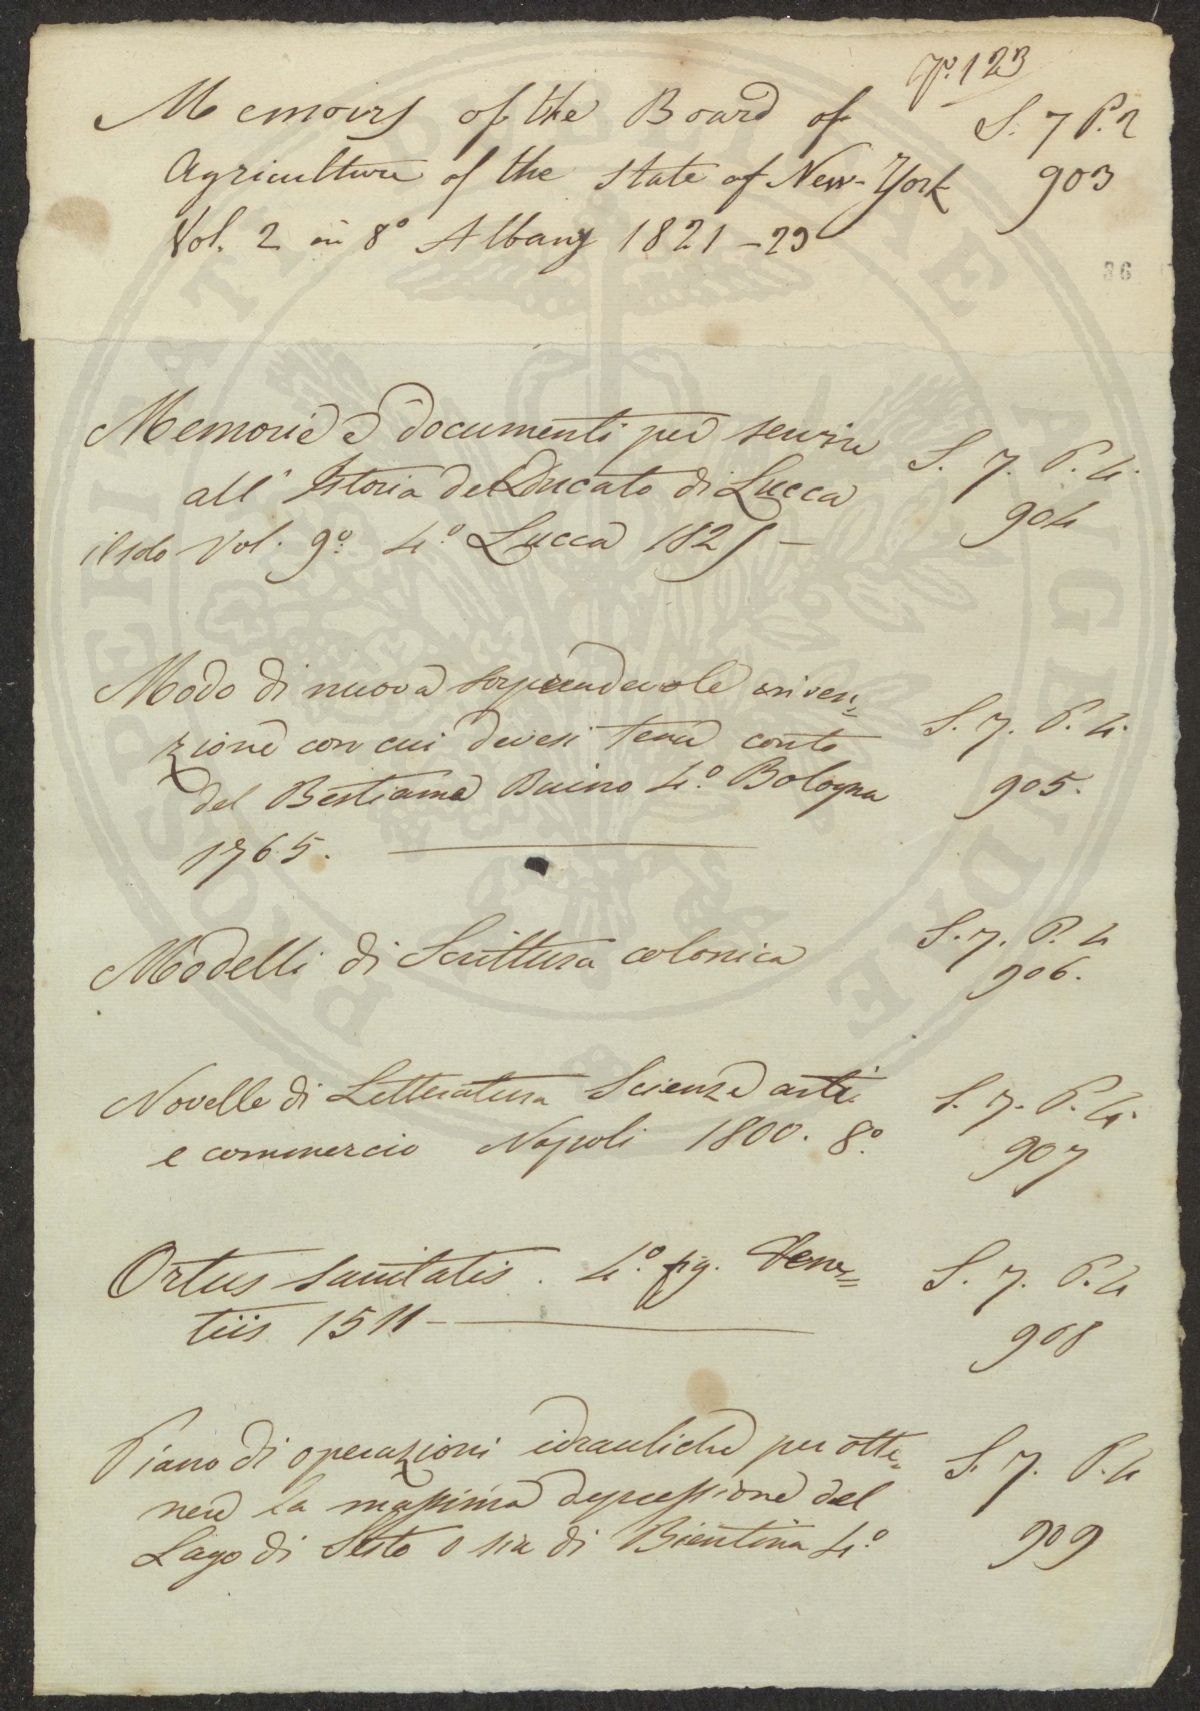 N.º 123
Memoirs of the Board of S. 7 P. 2
Agriculture of the state of New-York 903
Vol. 2 in 8º Albany 1821-23
36
Memorie e documenti per servire S. 7. P. 4.
all' Istoria del Ducato di Lucca 904
il solo Vol. 9º. 4º. Lucca 1825 -
Modo di nuova sorprendevole inven= S. 7. P. 4.
zione con cui devesi tener conto
del Bestiame Buino 4º. Bologna 905.
1765.
Modelli di Scrittura colonica S. 7. P. 4
906.
Novelle di Letteratura Scienze arti S. 7. P. 4.
e commercio Napoli 1800. 8º. 907
Ortus sanitatis. 4º. fig. Vene= S. 7. P. 4
tiis 1511 - 908
Piano di operazioni idrauliche per otte= S. 7. P. 4
nere la massima depressione del
Lago di Sesto o sia di Bientina 4º 909
PROSPERITATI PUBLICAE AUGENDAE